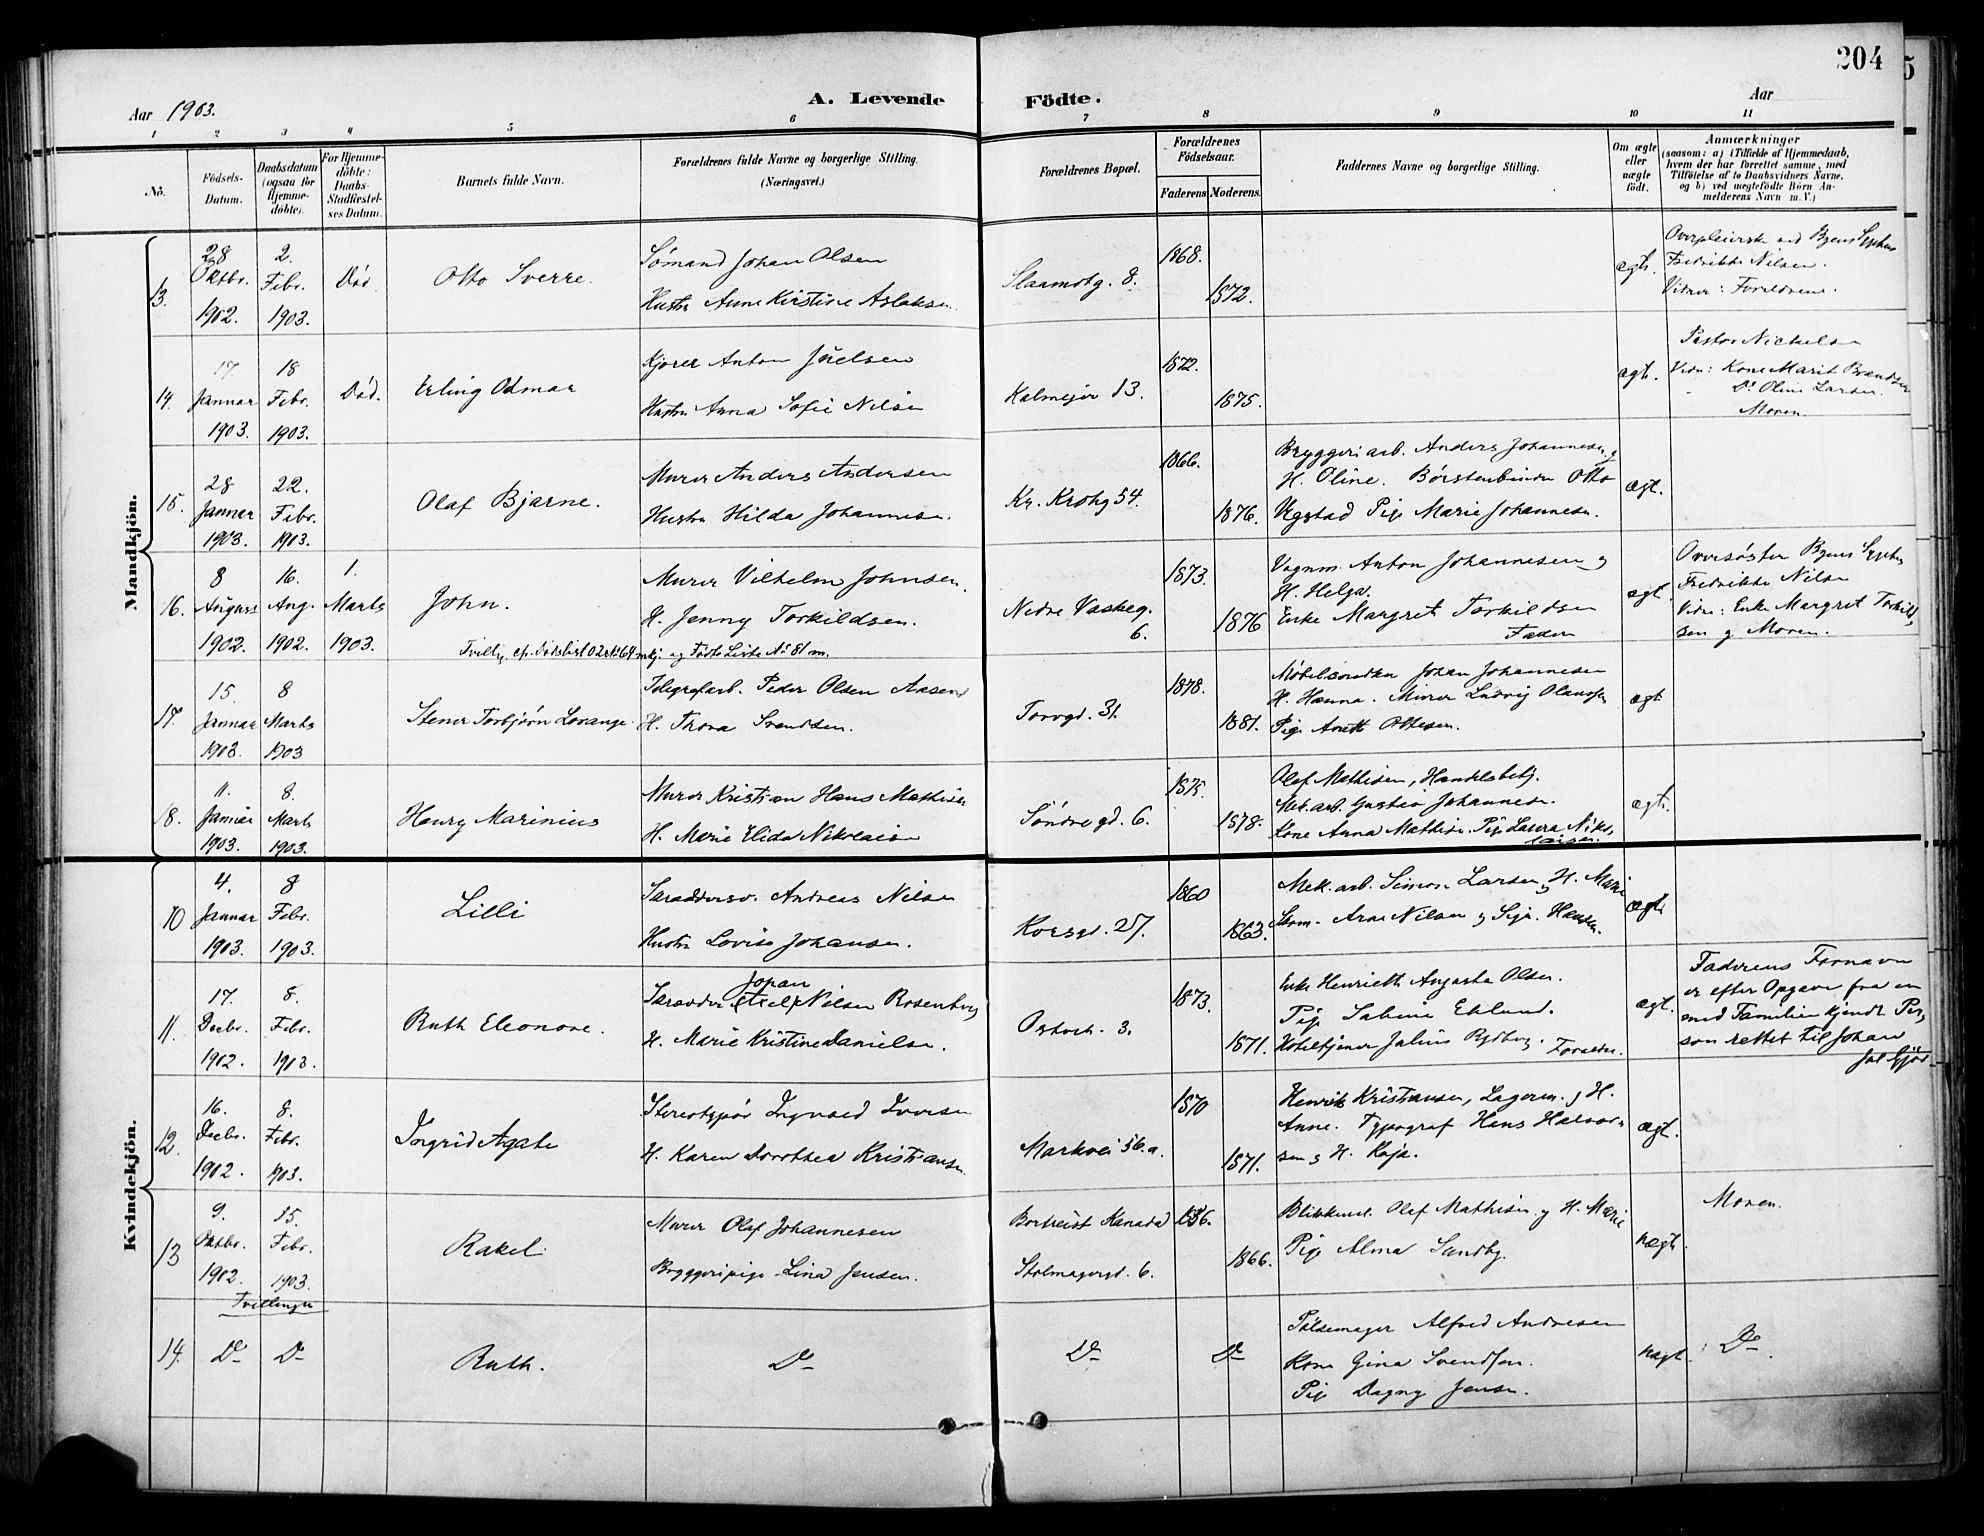 204
5
Aar 1903.
A. Levende Födte.
Aar
1 2 3 4 5 6 7 8 9 10 11
No.
Födsels-
Datum.
Daabsdatum
(ogsaa for
Hjemme-
döbte).
For Hjemme-
döbte:
Daabs-
Stadfæstel-
ses Datum.
Barnets fulde Navn.
Forældrenes fulde Navne og borgerlige Stilling.
(Næringsvei.)
Forældrenes Bopæl.
Forældrenes
Födselsaar.
Faderens Moderens.
Faddernes Navne og borgerlige Stilling.
Om ægte
eller
uægte
födt.
Anmærkninger
(saasom: a) i Tilfælde af Hjemmedaab,
hvem der har forrettet samme, med
Tilföielse af to Daabsvidners Navne.
og b) ved uægtefödte Börn An-
melderens Navn m. V.)
Mandkjön.
13.
28
Oktbr.
1902.
2.
Febr.
1903.
Død
Otto Sverre.
Sømand Johan Olsen
Hustru Anne Kirstine Aslaksen.
8.
1868.
1872.
ægt.
Fredrikke Nilsen.
Vidner: Forældrene.
14.
17.
Januar
1903.
18
Febr.
1903.
Død.
Erling Odmar
Kjører Anton Joelsen
Hustru Anna Sofie Nilsen
Kalmejer 13.
1872.
1875.
ægt.
Pastor Nickelsen
Vidn: Kone Marit Brendsen
Do Oline Larsen.
Moren.
15.
28
Januar
1903.
22.
Febr.
1903.
Olaf Bjarne.
Murer Anders Andersen
Hustru Hilda Johannesen.
Kr. Krohg 54.
1866.
1876.
Bryggeriarb. Anders Johannesen g
H. Oline. Børstenbinder Otto
Pige Marie Johannesen.
ægt.
16.
8
August
1902.
16.
Aug.
1902.
1.
Marts
1903.
John.
Tvilling, cfr. Dødslist 02 No 64 mkj. og Fødte Liste No 81 m.
Murer Vilhelm Johnsen.
H. Jenny Torkildsen.
Nedre Vaskeg.
6.
1873.
1876
Vognm. Anton Johannesen g
H. Helga.
Enke Margret Torkildsen
Faderen
ægt.
Oversøster Byens Sygehus
Fredrikke Nilsen
Vidne: Enke Margret Torkild,
sen g Moren.
17.
15.
Januar
1903.
8
Marts
1903
Stener Torbjørn Lorange.
Telegrafarb. Peder Olsen Aasend
H. Thora Svendsen.
Torvgd. 31.
1878.
1881.
Møbelsnedker Johan Johannesen
H. Hanna. Murer Ludvig Olaussen
Pige Anette Ottesen.
ægt
18.
11.
Januar
1903.
8.
Marts
1903.
Henry Marinius
Murer Kristian Hans Mathisen
H. Marie Elida Nikolaisen
Søndregd. 6.
1875.
1878.
Olaf Mathisen, Handelsbetj.
Mek. arb. Gustav Johannesen.
Kone Anna Mathisen. Pige Laura Niko,
laisen.
ægt.
Kvindekjön.
10
4.
Januar
1903.
8
Febr.
1903.
Lilli
Andreas Nilsen
Hustru Lovise Johansen.
Korsgd. 27.
1860
1863.
Mek. arb. Simon Larsen g H. Marie
Skom. Arne Nilsen g Sign. Hansen.
ægt
11.
17.
Decbr.
1902.
8.
Febr.
1903.
Ruth Eleonore.
Johan
Nilsen Rosenberg
H. Marie Kristine Danielsen.
3.
1873.
1871.
Enke Henriette Augusta Olsen.
Pige Sabine Eklund.
Hoteltjener Julius Rydberg. Forældre.
ægt.
Faderens Fornavn
er efter Opgave fra en
med Familien kjendt Per,
son rettet til Johan
12.
16.
Decbr.
1902.
8.
Febr.
1903.
Ingrid Agate
Stereotypør Ingvald Iversen
H. Karen Dorothea Kristiansen.
Markvei 56 a.
1870
1871.
Henrik Kristiansen, Lagerm. g H.
Anne. Typograf Hans Halvor-
sen g H. Kaja.
ægt.
13
9.
Oktbr.
1902.
15.
Febr.
1903.
Tvillinger
Rakel
Murer Olaf Johannesen
Bryggeripige Lina Jensen.
Bortreist Kanada
Stolmagergd. 6.
1866.
Blikkensl. Olaf Mathisen g H. Marie
Pige Alma Sundby.
uægt.
Moren.
14.
Do
Do
Ruth.
Do
Do
Do
Pølsemager Alfred Andresen
Kone Gina Svendsen.
Pige Dagny Jensen.
uægt.
Do